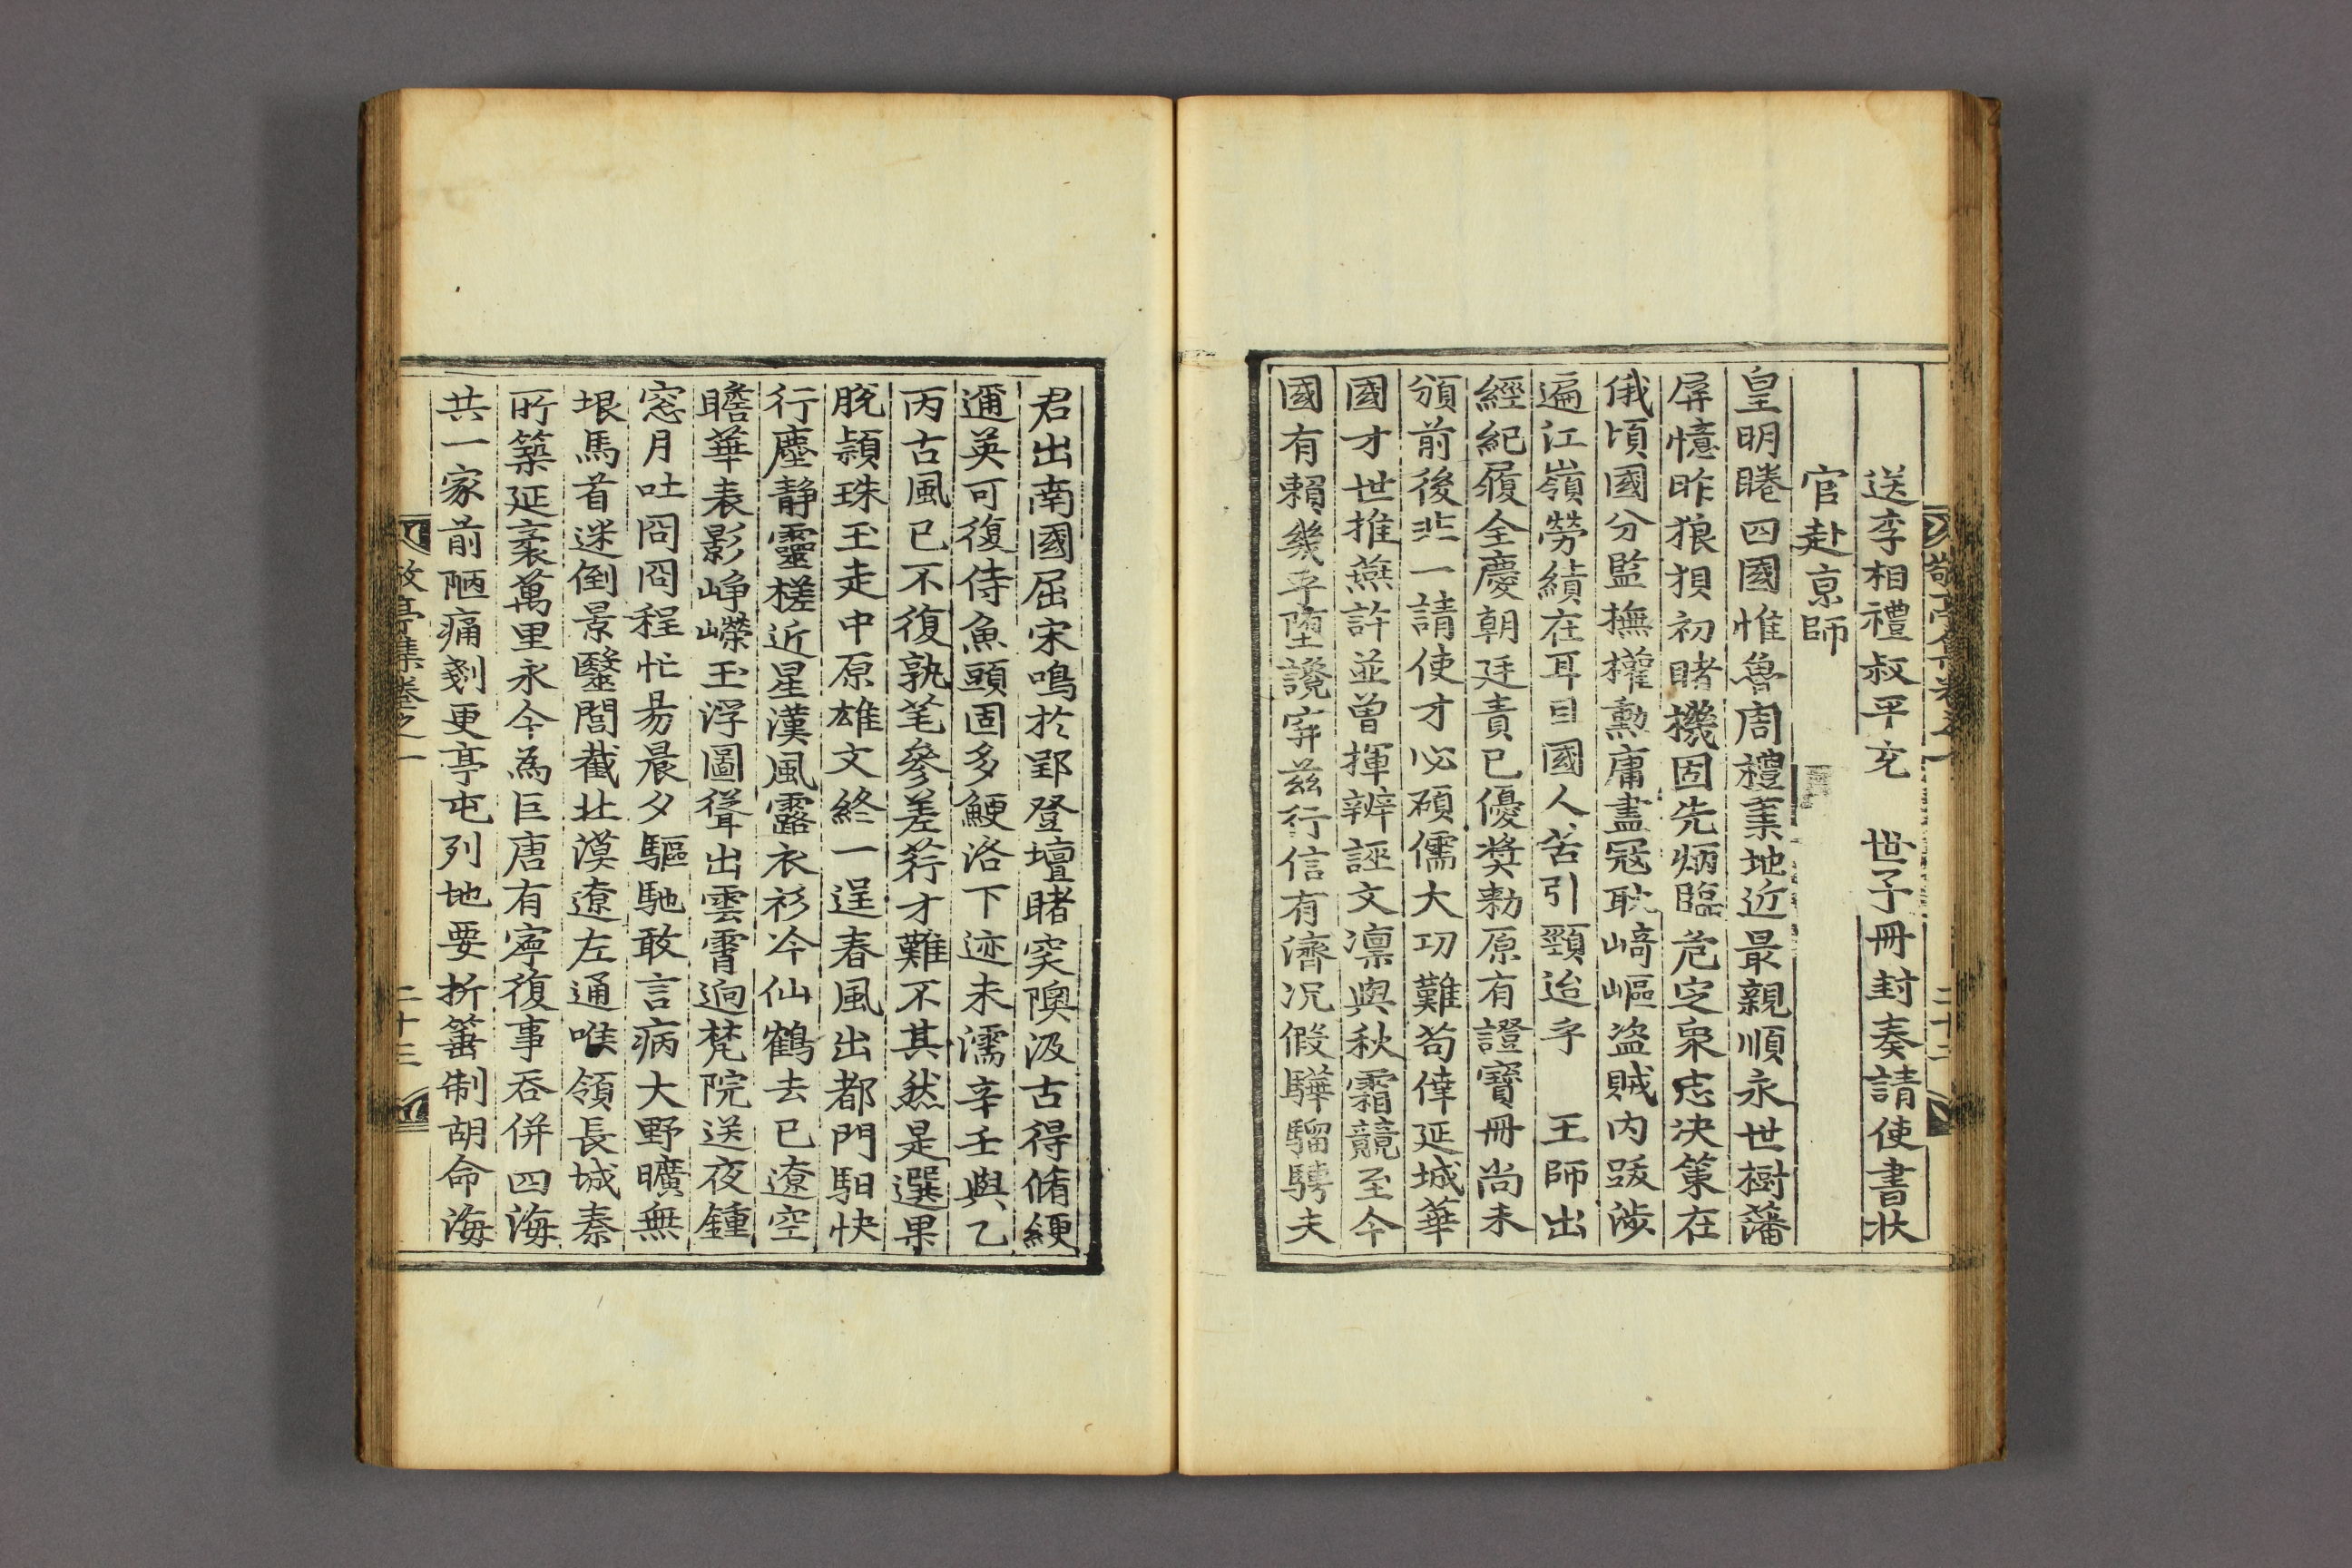 敬亭集卷之一
二十二
送李相禮叔平充　世子冊封奏請使書狀
官赴京師
皇明睠四國惟魯周禮業地近最親順永世樹藩
屏憶昨狼狽初睹機固先炳臨危定衆志决策在
俄頃國分監撫權勳庸盡冠耿﨑嶇盜賊內跋涉
遍江嶺勞績在耳目國人苦引頸迨乎　王師出
經紀履全慶朝廷責已優奬勅原有證寶冊尚未
頒前後非一請使才必碩儒大功難苟倖延城華
國才世推燕許並曾揮辨誣文凛與秋霜競至今
國有賴幾乎墮讒穽兹行信有濟况假驊騮騁夫
君出南國屈宋鳴於郢登壇睹突隩汲古得脩綆
邇英可復侍魚頭固多鯁洛下迹未濡辛壬與乙
丙古風已不復孰芼參差荇才難不其然是選果
脫穎珠玉走中原雄文終一逞春風出都門馹快
行塵静靈槎近星漢風露衣衫冷仙鶴去已遼空
瞻華表影崢嶸玉浮圖聳出雲霄逈梵院送夜鍾
窓月吐冏冏程忙易晨夕驅馳敢言病大野曠無
垠馬首迷倒景毉閭截北漠遼左通喉領長城秦
所築延袤萬里永今為巨唐有寧復事吞併四海
共一家前陋痛剗更亭屯列地要折箠制胡命海
敬亭集卷之一
二十三